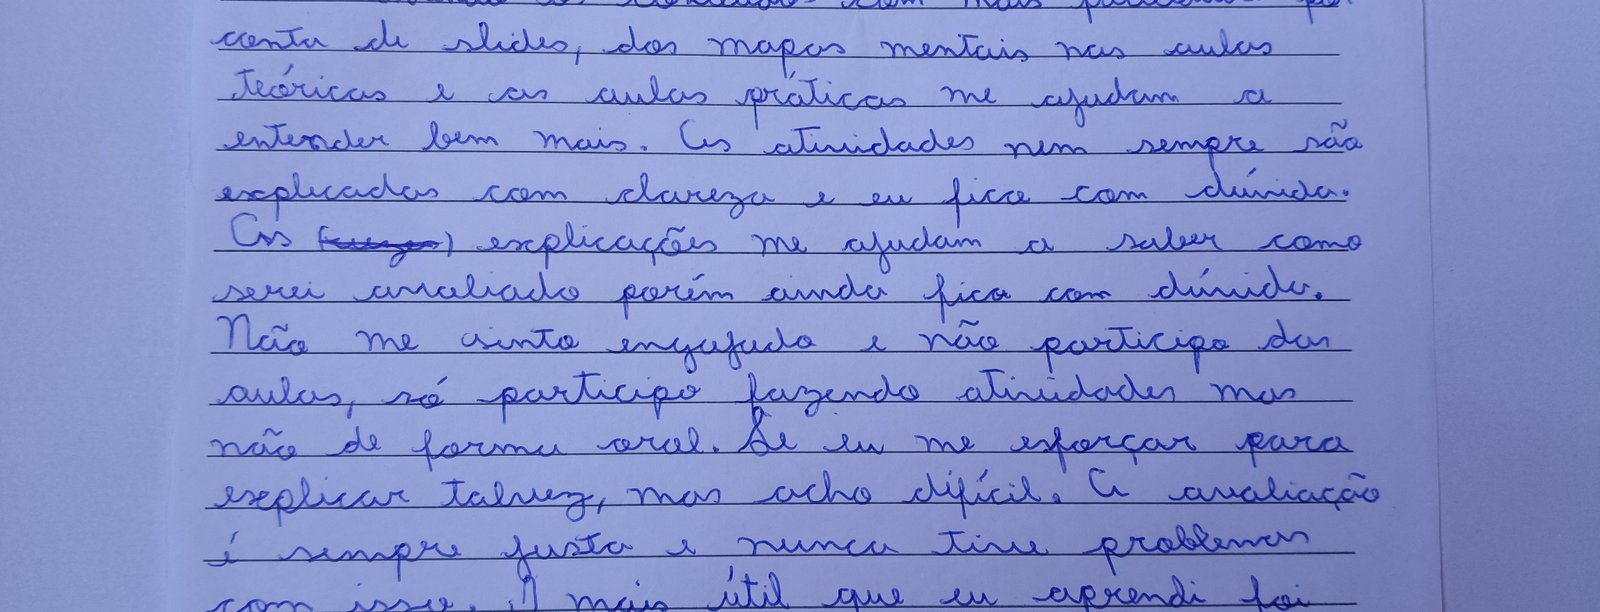 conta de slides, dos mapas mentais nas aulas
teóricas e as aulas práticas me ajudam a
entender bem mais. As atividades nem sempre são
explicadas com clareza e eu fico com dúvida.
As explicações me ajudam a saber como
serei avaliado porém ainda fico com dúvida.
Não me sinto engajado e não participo das
aulas, só participo fazendo atividades mas
não de forma oral. Se eu me esforçar para
explicar talvez, mas acho difícil. A avaliação
é sempre justa e nunca tive problemas
com isso. A mais útil que eu aprendi foi